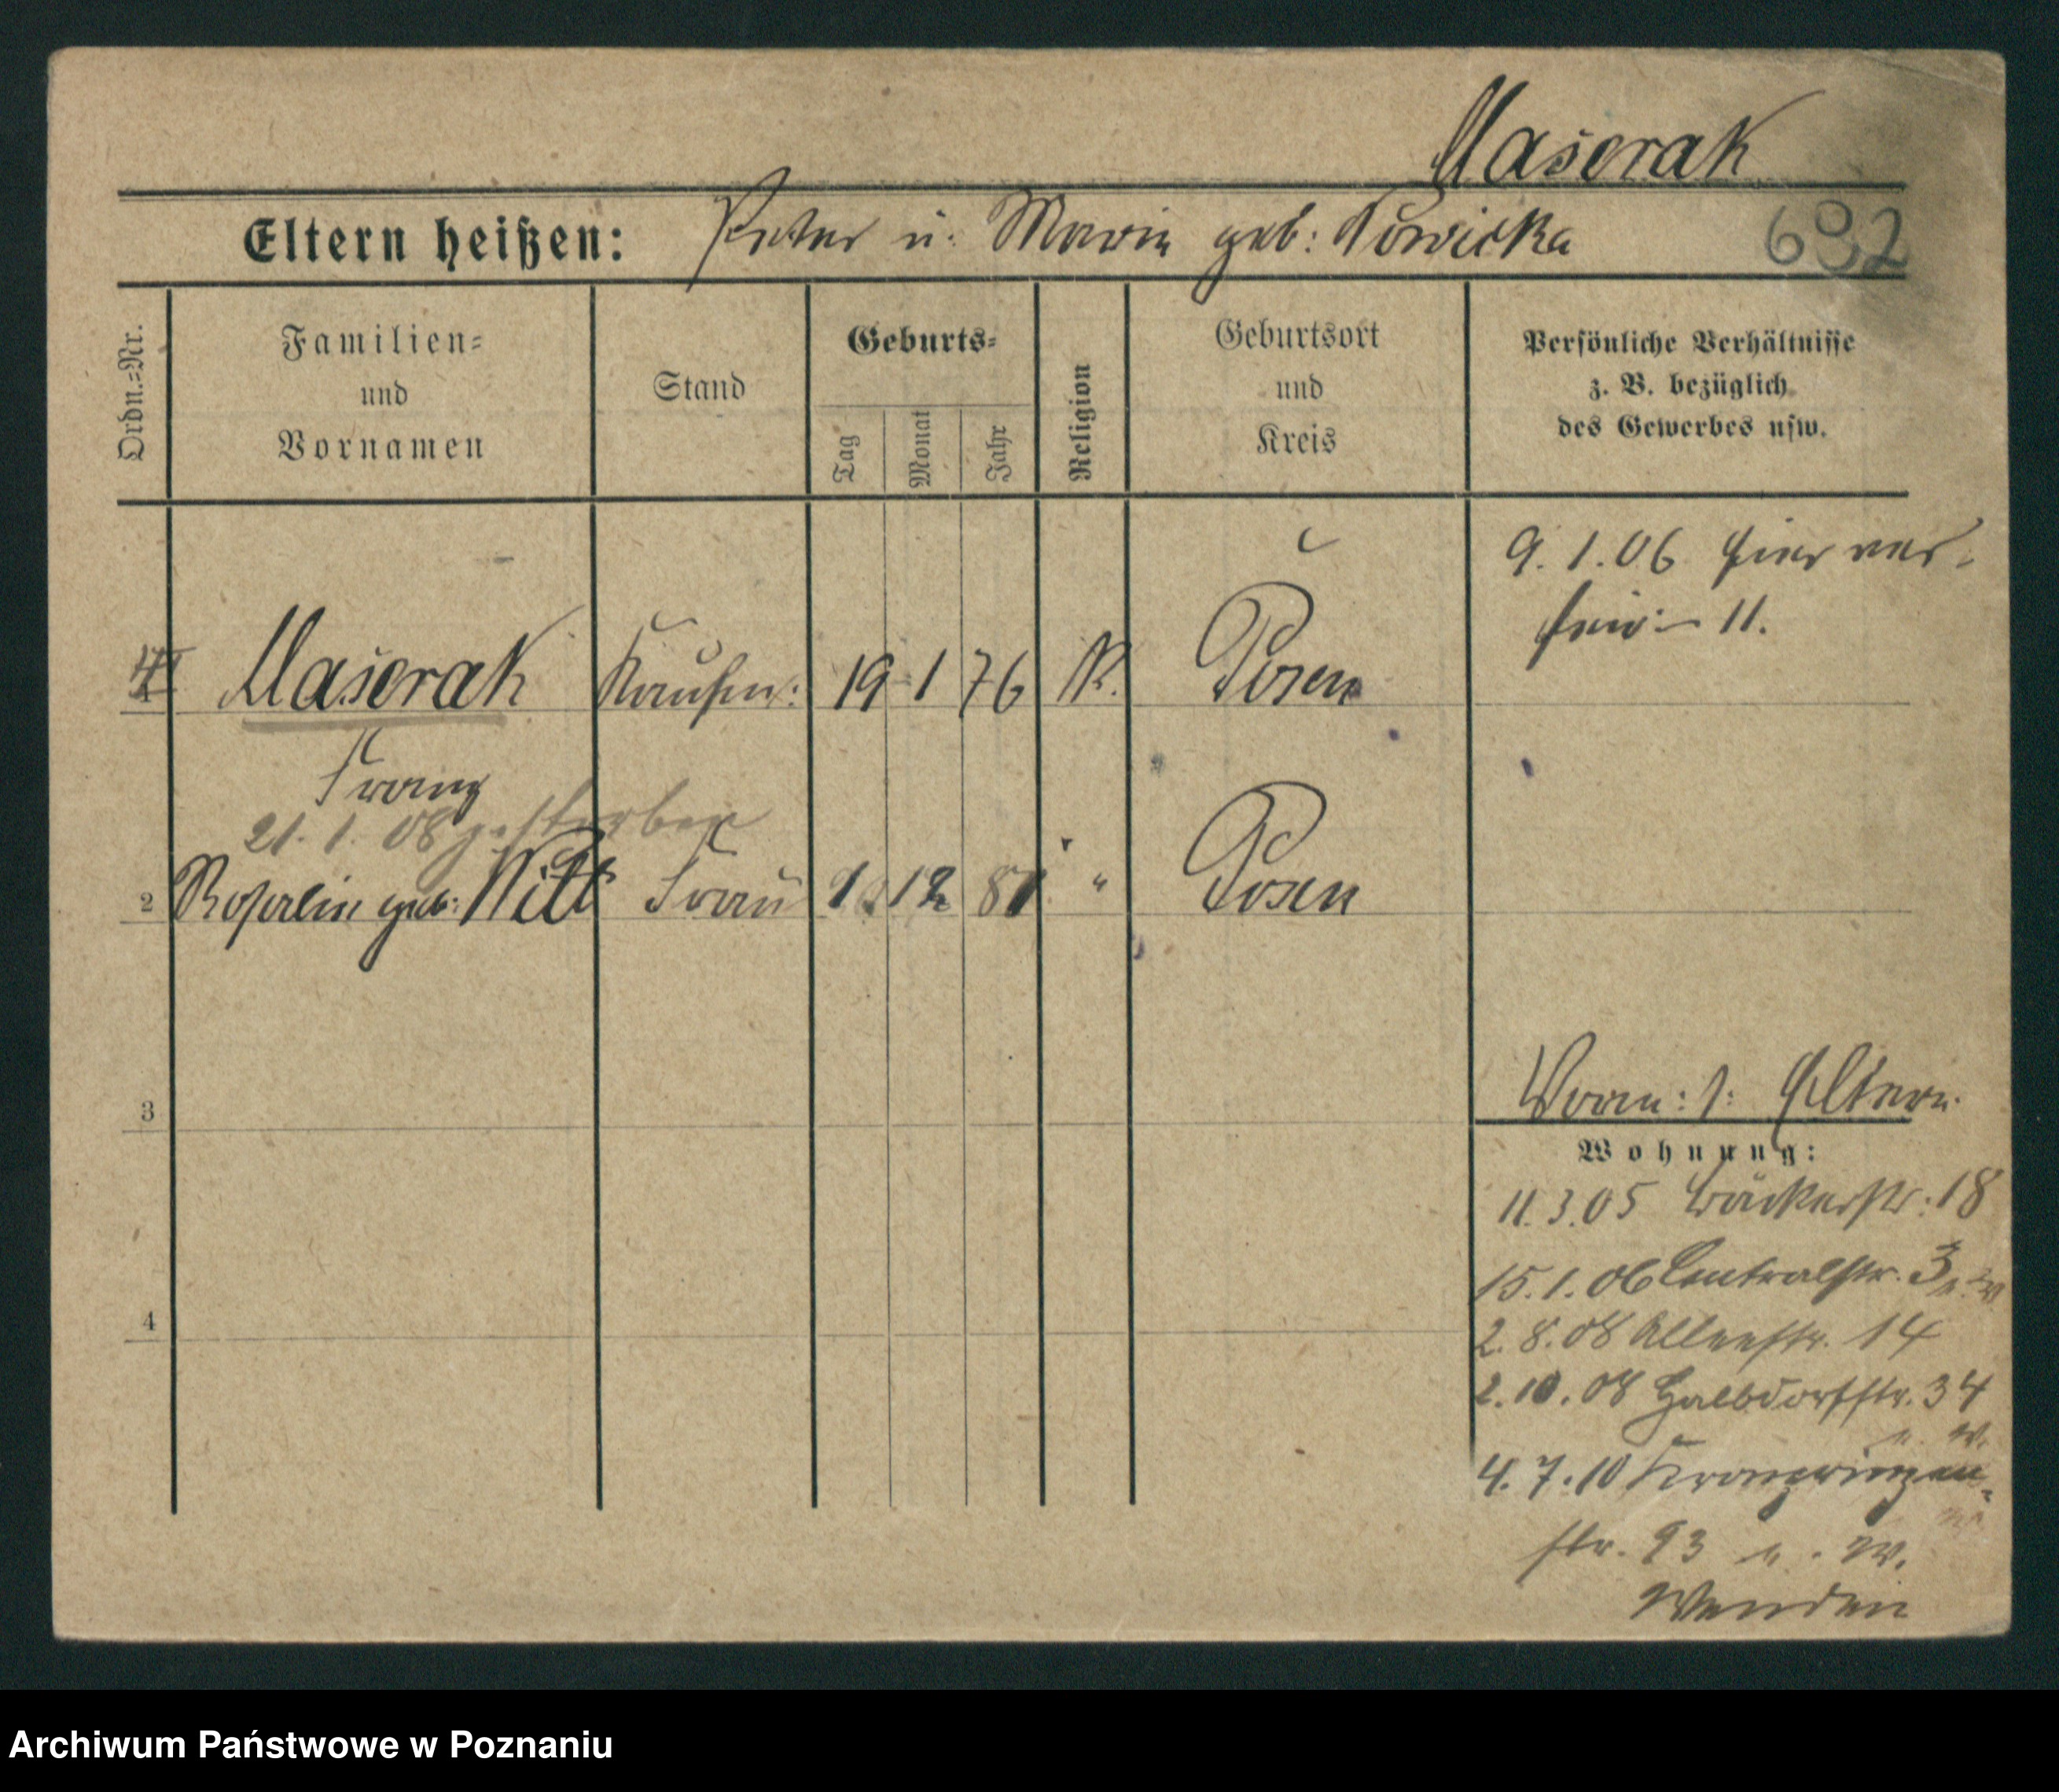 Maserak
Eltern heißen: Peter u. Marie geb: Nowicka
692
Ordn.=Nr.
Familien=
und
Vornamen
Stand
Geburts=
Tag
Monat
Jahr
Religion
Geburtsort
und
Kreis
Persönliche Verhältnisse
z. B. bezüglich
des Gewerbes usw.
9. 1. 06 hier ver-
11.
Maserak Kaufm: 19 1 76 K. Posen
Franz
21. 1. 08 gestorben
2 Rosalie geb: Witt Frau 1 12 81 " Posen
3
4
Vorm: s: Eltern.
Wohnung:
11. 3. 05 Bäckerstr: 18
15. 1. 06 Centralstr. 3
2. 8. 08 Alleestr. 14
2. 10. 08 Halbdorfstr. 34
u. W.
4. 7. 10 Kronprinzen-
str. 93 u. W.
Wenden
Archiwum Państwowe w Poznaniu